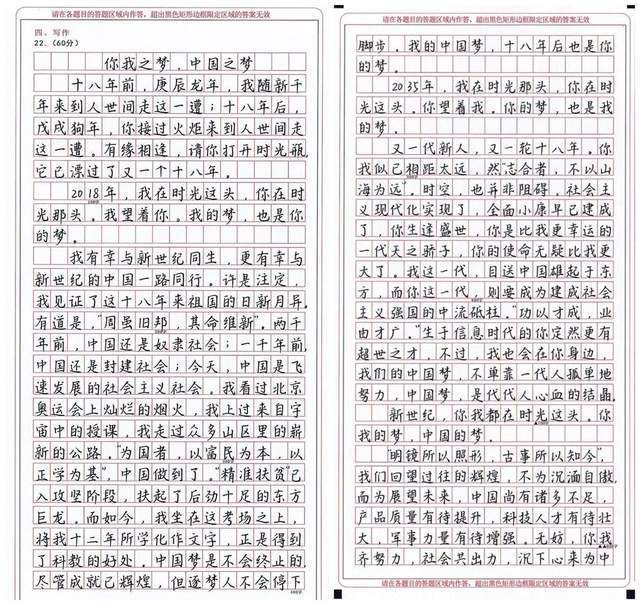 请在各题目的答题区域内作答，超出黑色矩形边框限定区域的答案无效
四、写作
22.（60分）
你我之梦，中国之梦
十八年前，庚辰龙年，我随新千
年来到人世间走这一遭；十八年后，
戊戌狗年，你接过火炬来到人世间走
这一遭。有缘相逢，请你打开时光瓶，
它已漂过了又一个十八年。
2018年，我在时光这头，你在时
光那头。我望着你。我的梦，也是你
的梦。
我有幸与新世纪同生，更有幸与
新世纪的中国一路同行。许是注定，
我见证了这十八年来祖国的日新月异。
有道是，“周虽旧邦，其命维新”。两千
年前，中国还是奴隶社会；一千年前，
中国还是封建社会；今天，中国是飞
速发展的社会主义社会，我看过北京
奥运会上灿烂的烟火，我上过来自宇
宙中的授课，我走过众多山区里的崭
新的公路。“为国者，以富民为本，以
正学为基”，中国做到了。“精准扶贫”已
入攻坚阶段，扶起了后劲十足的东方
巨龙。而如今，我坐在这考场之上，
将我十二年所学化作文字，正是得到
了科教的好处。中国梦是不会终止的。
尽管成就已辉煌，但逐梦人不会停下
请在各题目的答题区域内作答，超出黑色矩形边框限定区域的答案无效
脚步。我的中国梦，十八年后也是你
的梦。
2035年，我在时光那头，你在时
光这头。你望着我。你的梦，也是我
的梦。
又一代新人，又一轮十八年。你
我似已相距太远，然“志合者，不以山
海为远”。时空，也并非阻碍。社会主
义现代化实现了，全面小康早已建成
了，你生逢盛世，你是比我更幸运的
一代天之骄子，你的使命无疑比我更
大了。我这一代，目送中国雄起于东
方，而你这一代，则要成为建成社会
主义强国的中流砥柱。“功以才成，业
由才广。”生于信息时代的你定然更有
超世之才，不过，我也会在你身边，
我们的中国梦，不单靠一代人孤单地
努力，中国梦，是代代人心血的结晶。
新世纪，你我都在时光这头。你
我的梦，中国的梦。
“明镜所以照形，古事所以知今”，
我们回望过往的辉煌，不为沉湎自傲，
而为展望未来，中国尚有诸多不足，
产品质量有待提升，科技人才有待壮
大，军事力量有待增强。无妨，你我
齐努力，社会共出力，沉下心来为中
请在各题目的答题区域内作答，超出黑色矩形边框限定区域的答案无效